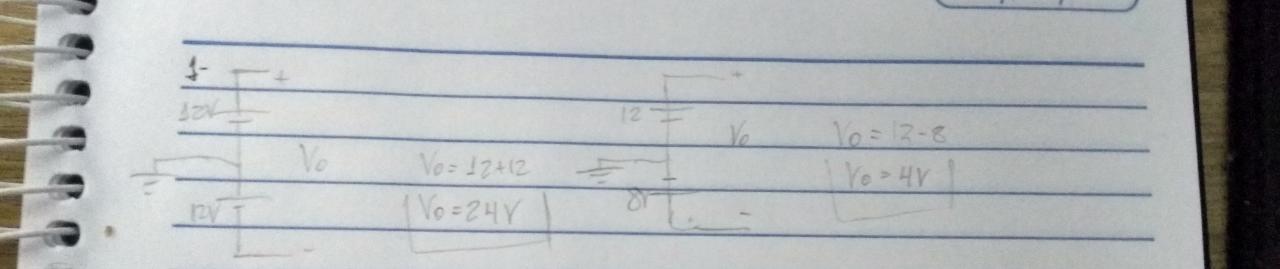 1-
+
12V
Vo
12V
-
Vo = 12+12
Vo = 24V
+
12
Vo
8V
-
Vo = 12-8
Vo = 4V